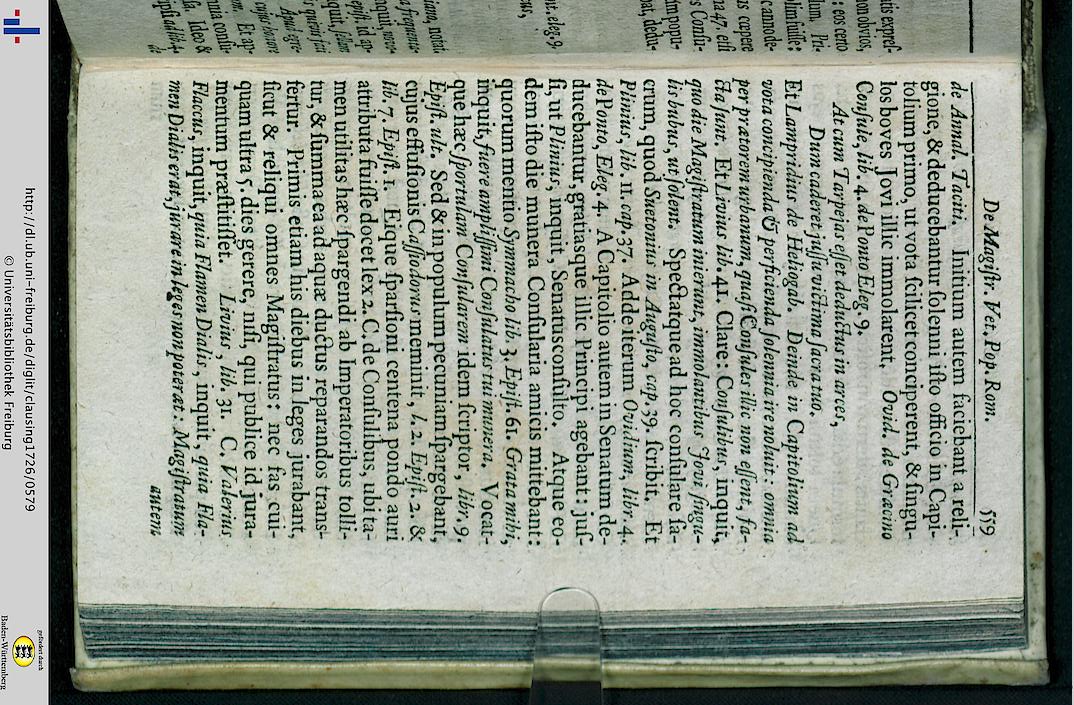 De Magistr. Vet. Pop. Rom. 559
de Asinal. Tacit. Initium autem faciebant a reli-
gione, & deducebantur solenni isto officio in Capi-
tolium primo, ut vota scilicet conciperent, & singu-
los boves Jovi illic immolarent. Ovid. de Græcino
Consule, lib. 4. de Ponto Eleg. 9.
At cum Tarpeias esset deductus in arces,
Dum caderet jussu victima sacra tuo.
Et Lampridius de Heliogab. Deinde in Capitolium ad
vota concipienda & perficienda solennia ire noluit: omnia
per prætorem urbanum, quasi Consules illic non essent, fa-
cta sunt. Et Livius lib. 41. Clare: Consulibus, inquit,
quo die Magistratum inierunt, immolantibus Jovi singu-
lis bubus, ut solent. Spectatque ad hoc consulare sa-
crum, quod Suetonius in Augusto, cap. 39. scribit. Et
Plinius, lib. 11. cap. 37. Adde iterum Ovidium, libr. 4.
de Ponto, Eleg. 4. A Capitolio autem in Senatum de-
ducebantur, gratiasque illic Principi agebant: jus-
si, ut Plinius, inquit, Senatusconsulto. Atque eo-
dem isto die munera Consularia amicis mittebant:
quorum mentio Symmacho lib. 3. Epist. 61. Grata mihi,
inquit, fuere amplissimi Consulatus tui munera. Vocat-
que hæc sportulam Consularem idem scriptor, libr. 9.
Epist. ult. Sed & in populum pecuniam spargebant,
cujus effusionis Cassiodorus meminit, l. 2. Epist. 2. &
lib. 7. Epist. 1. Eique sparsioni centena pondo auri
attributa fuisse docet lex 2. C. de Consulibus, ubi ta-
men utilitas hæc spargendi ab Imperatoribus tolli-
tur, & summa ea ad aquæ ductus reparandos trans-
fertur. Primis etiam his diebus in leges jurabant,
sicut & reliqui omnes Magistratus: nec fas cui-
quam ultra 5. dies gerere, nisi, qui publice id jura-
mentum præstitisset. Livius, lib. 31. C. Valerius
Flaccus, inquit, quia Flamen Dialis, inquit, quia Fla-
men Dialis erat, jurare in leges non poterat: Magistratum
autem
http://dl.ub.uni-freiburg.de/diglit/clausing1726/0579
© Universitätsbibliothek Freiburg
gefördert durch
Baden-Württemberg